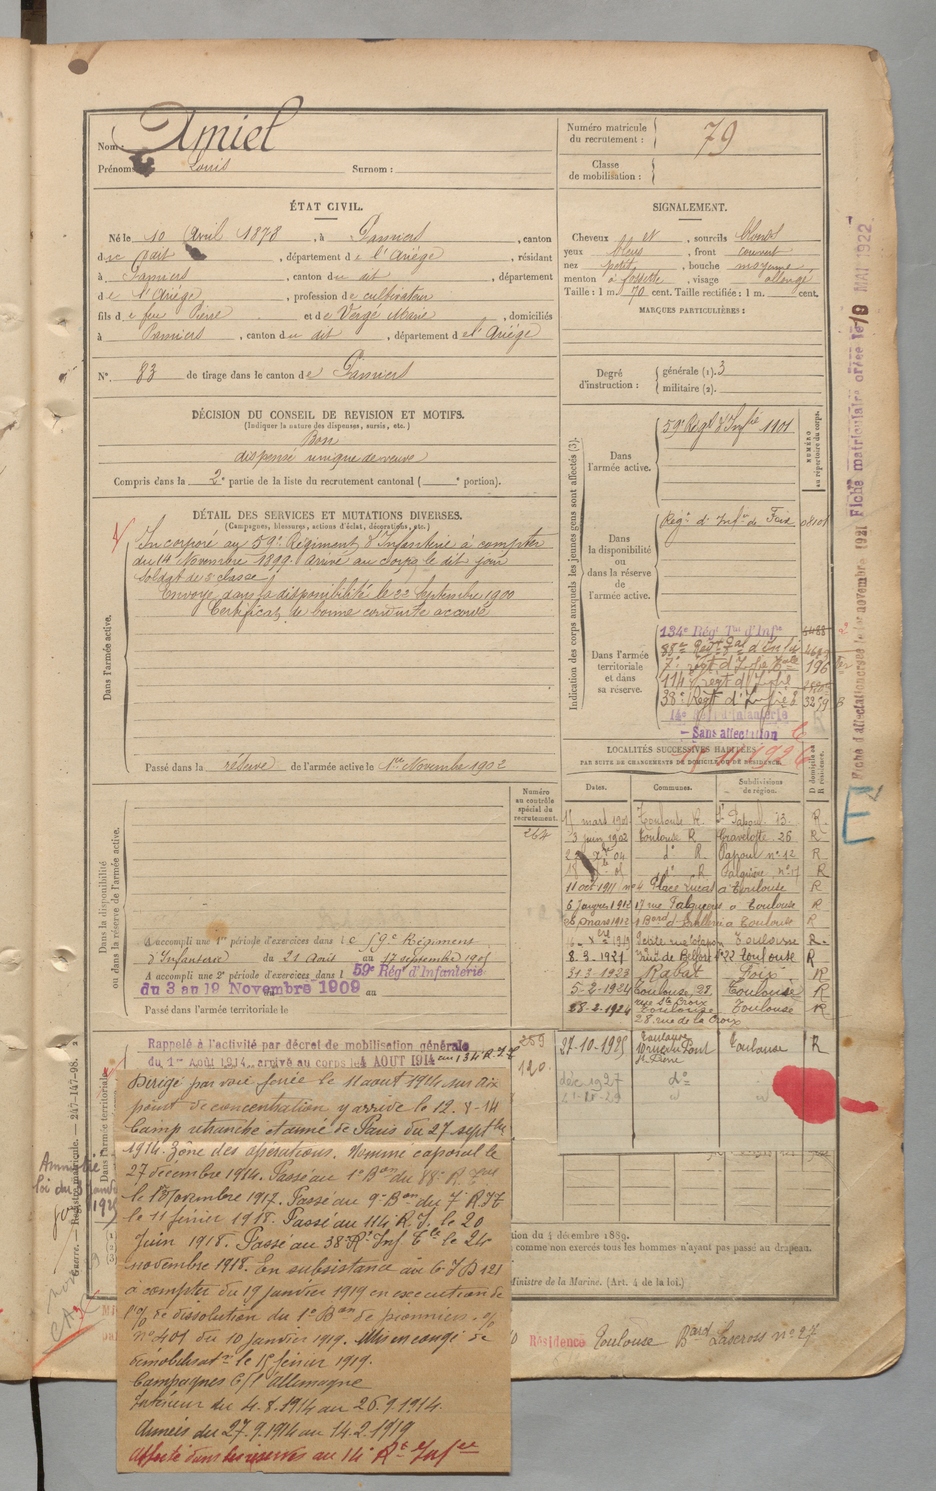 Nom : Amiel
Prénoms Louis Surnom :
Numéro matricule du recrutement : 79
Classe de mobilisation :
ÉTAT CIVIL.
Né le 10 Avril 1878, à Pamiers, canton
du dit, département de l'Ariège, résidant
à Pamiers, canton du dit, département
de l'Ariège, profession de cultivateur
fils de feu Pierre et de Vergé Marie, domiciliés
à Pamiers, canton du dit, département de l'Ariège
N° 83 de tirage dans le canton de Pamiers
SIGNALEMENT.
Cheveux et, sourcils blonds
yeux bleus, front couvert
nez petit, bouche moyenne
menton à fossette, visage allongé
Taille : 1 m. 70 cent. Taille rectifiée : 1 m. cent.
MARQUES PARTICULIÈRES :
Degré d'instruction : générale (1). 3
militaire (2).
DÉCISION DU CONSEIL DE REVISION ET MOTIFS.
(Indiquer la nature des dispenses, sursis, etc.)
Bon
dispensé unique de veuve
Compris dans la 2e partie de la liste du recrutement cantonal ( e portion).
DÉTAIL DES SERVICES ET MUTATIONS DIVERSES.
(Campagnes, blessures, actions d'éclat, décorations, etc.)
Dans l'armée active.
Incorporé au 59e Régiment d'Infanterie à compter
du 14 Novembre 1899. Arrivé au corps le dit jour
soldat de 2e classe
Envoyé dans la disponibilité le 22 Septembre 1900
Certificat de bonne conduite accordé
Passé dans la réserve de l'armée active le 1er Novembre 1902
Indication des corps auxquels les jeunes gens sont affectés (3).
NUMÉRO au répertoire du corps.
Dans l'armée active.
59e Régt d'Infie 1101
Dans la disponibilité ou dans la réserve de l'armée active.
Régt d'Infie de Foix 08101
Dans l'armée territoriale et dans sa réserve.
134e Régt Tal d'Infie
7e régt d'Inf Tale 196
114e Régt d'Infie
38e Régt d'Infie 3259
14e Régt d'Infanterie
Sans affectation
LOCALITÉS SUCCESSIVES HABITÉES
PAR SUITE DE CHANGEMENTS DE DOMICILE OU DE RÉSIDENCE.
Dates. Communes. Subdivisions de région. D domicile ou R résidence.
mars 1902 Toulouse R. St Papoul 13. R
3 juin 1902 Toulouse R Gravelotte 26 R
do R Papoul no 12 R
do R Palquière, no 17 R
11 oct 1911 no 4 Place Lucas à Toulouse R
6 janvier 1912 17 rue Palquières à Toulouse R
mars 1912 Toulouse R
1919 Toulouse R
8.3.1921 Rue de Belfort no 22 Toulouse R
31.3.1923 Rabat Foix R
5-2-1924 Toulouse, 28, rue Ste Croix Toulouse R
28-2-1924 Toulouse 28 rue de la Croix Toulouse R
27-10-1925 Toulouse Toulouse R
déc 1927 do
Numéro au contrôle spécial du recrutement.
264
Dans la disponibilité ou dans la réserve de l'armée active.
A accompli une 1re période d'exercices dans le 59e Régiment
d'Infanterie du 21 Août au 17 septembre 1905
A accompli une 2e période d'exercices dans le 59e Régt d'Infanterie
du 3 au 19 Novembre 1909 au
Passé dans l'armée territoriale le
Dans l'armée territoriale
Rappelé à l'activité par décret de mobilisation générale
du 1er Août 1914, arrivé au corps le 4 AOUT 1914 au 134 R.I.T
259
120
Dirigé par voie ferrée le 11 août 1914 sur dix
point de concentration y arrive le 12-8-14
Camp retranché et armé de Paris du 27 septbre
1914. Zône des opérations. Nommé caporal le
27 décembre 1914. Passé au 1er Bon du 88e R. Tal
le 1er Novembre 1917. Passé au 9e Bon du 7 RIT
le 11 février 1918. Passé au 114e R.I. le 20
Juin 1918. Passé au 38e Rt Inf Tle le 24
novembre 1918. En subsistance au G.I.B 121
à compter du 19 janvier 1919 en exécution de
l'o/ de dissolution du 1er Bon de pionniers. o/
no 401 du 10 janvier 1919. Mis en congé de
démobilisatn le 15 février 1919.
Campagnes C/ l'Allemagne
Intérieur du 4.8.1914 au 26.9.1914.
Armées du 27.9.1914 au 14.2.1919
Affecté dans les réserves au 14e Rt d'Infie
tion du 4 décembre 1889.
comme non exercés tous les hommes n'ayant pas passé au drapeau.
Ministre de la Marine. (Art. 4 de la loi.)
Résidence Toulouse Bard Lascross no 27
Amnistie
loi du 3 janvr
1925
Guerre. — Registre matricule. — 247-147-98.
Fiche d'affectation créée le 1er novembre 1921
Fiche matriculaire créée le 19 MAI 1922